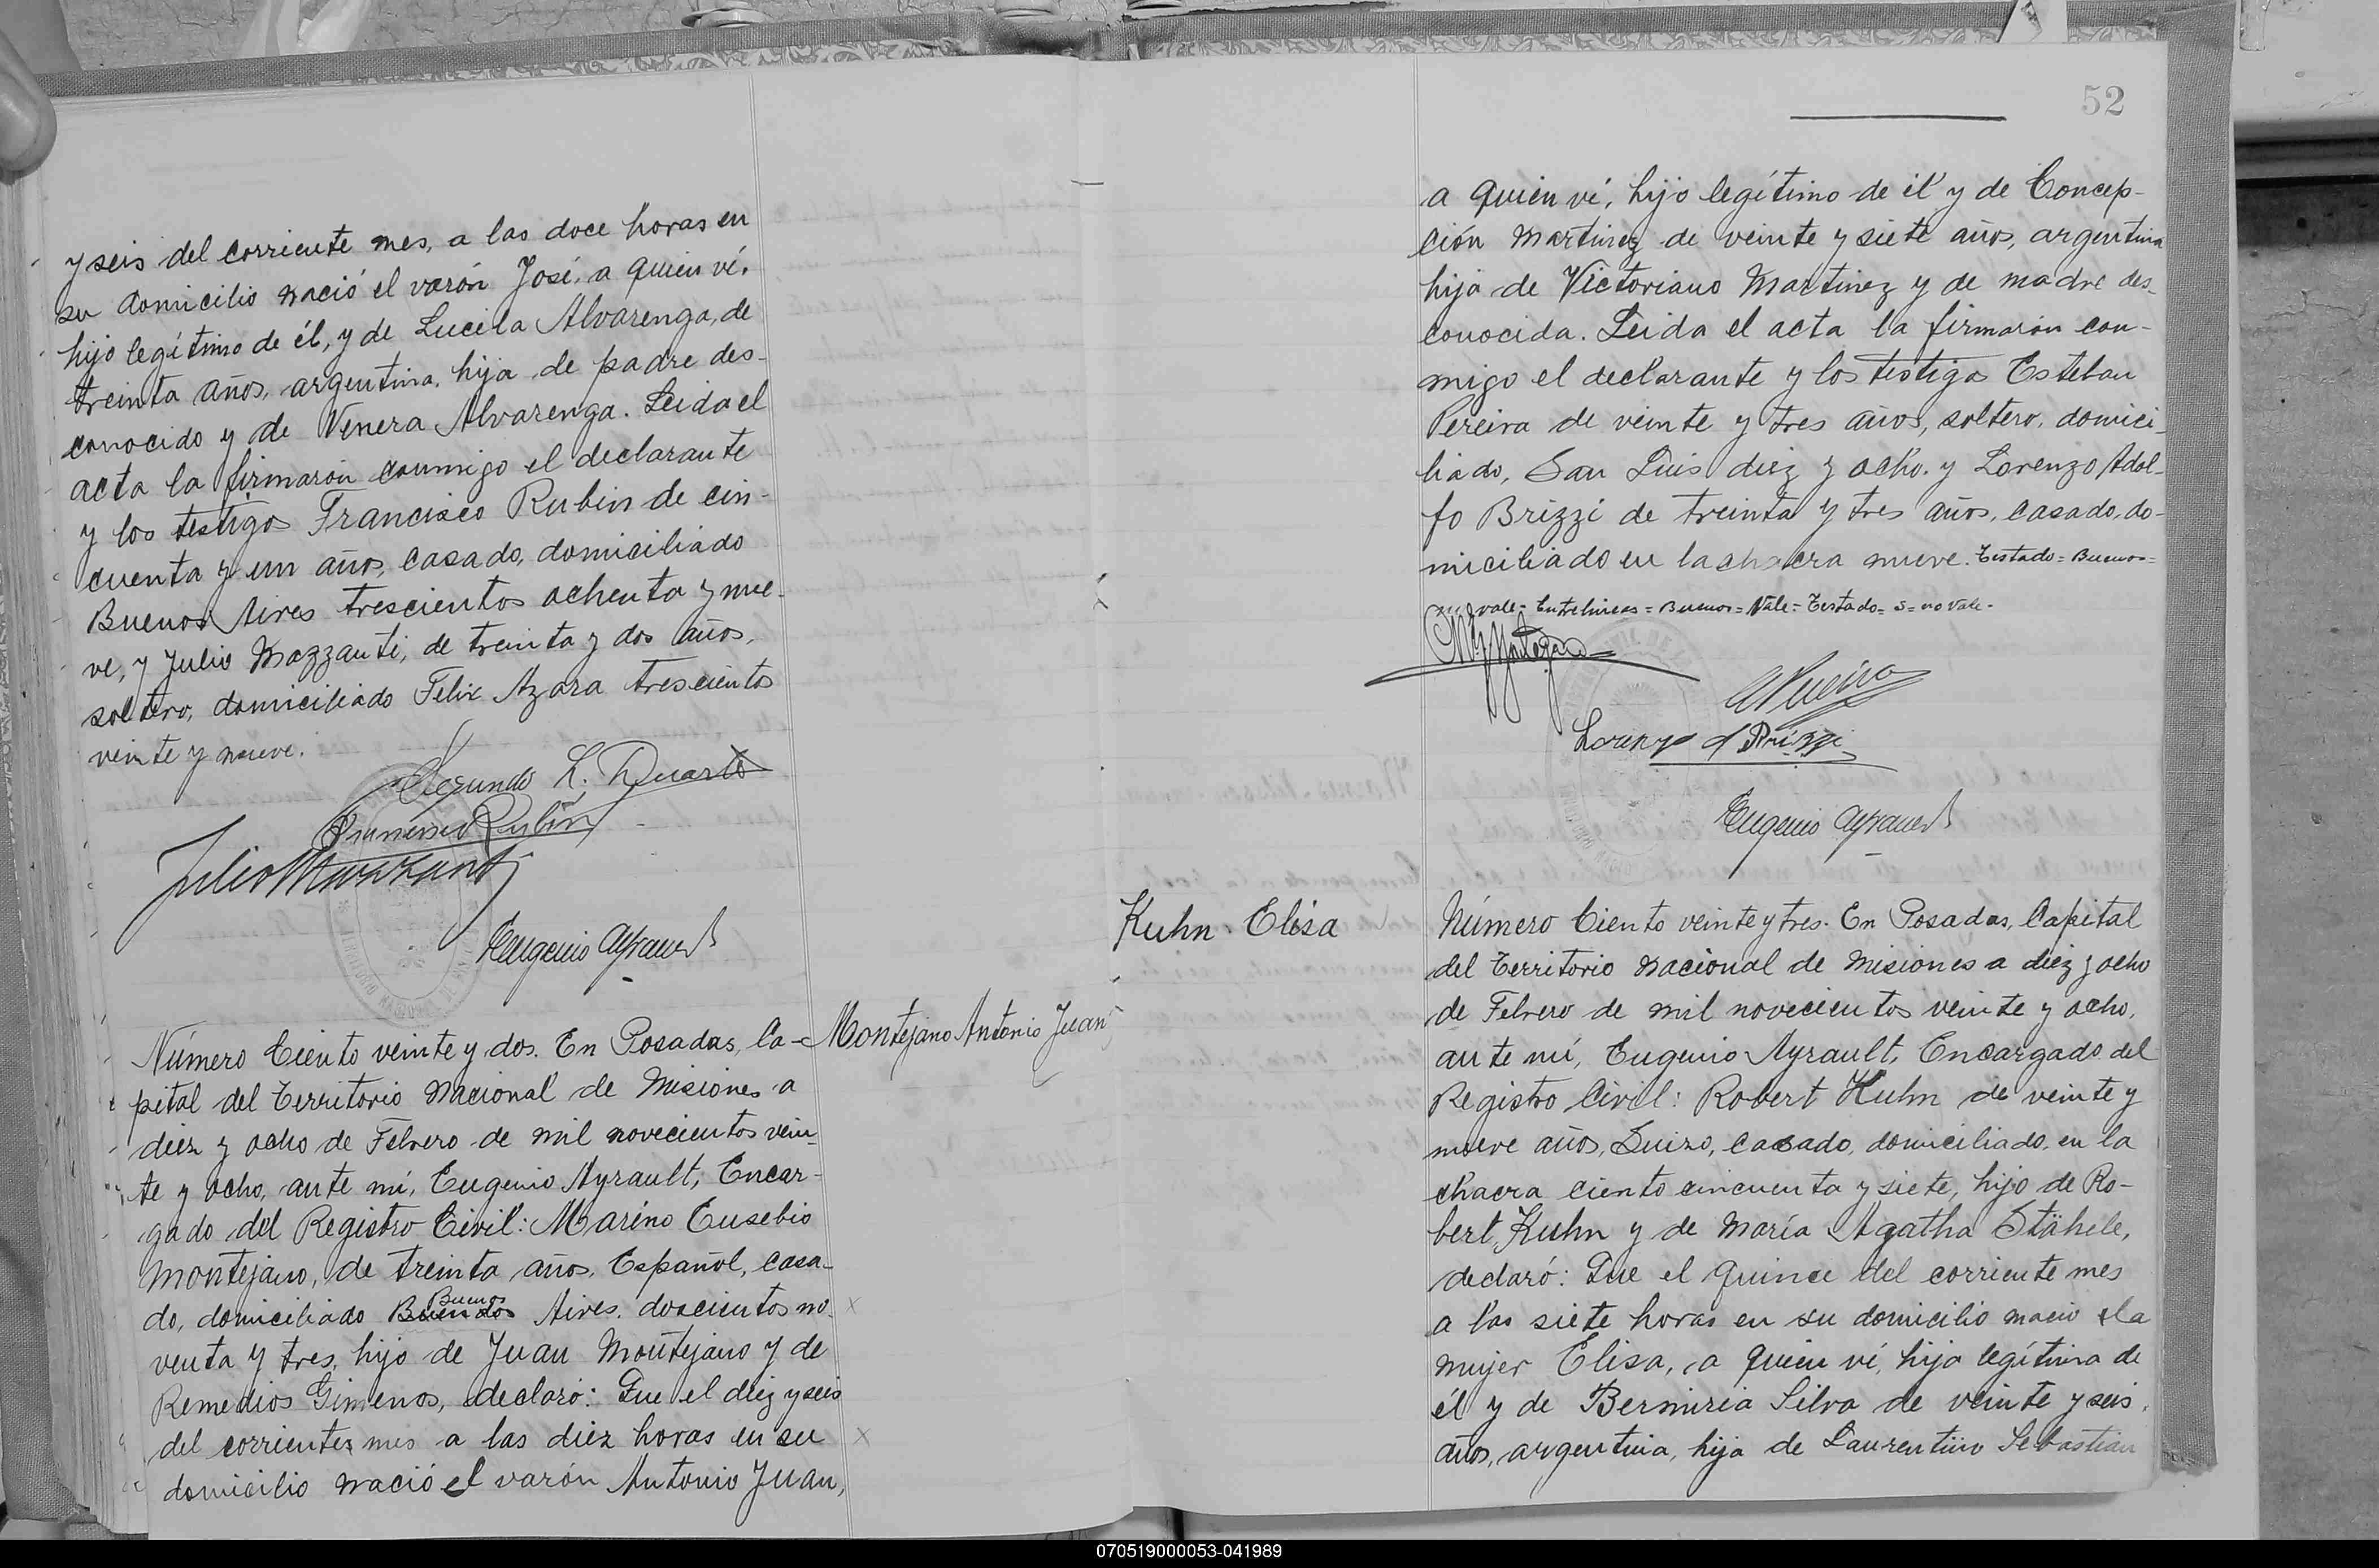 y seis del corriente mes, a las doce horas en
su domicilio nació el varón José, a quien ví.
hijo legítimo de él, y de Lucila Alvarenga, de
treinta años, argentina, hija de padre des-
conocido y de Venera Alvarenga. Leida el
acta la firmarón conmigo el declarante
y los testigos Francisco Rubin de cin-
cuenta y un años, casado, domiciliado
Buenos Aires trescientos ochenta y nue-
ve, y Julio Mazzanti, de treinta y dos años,
soltero, domiciliado Felix Azara trescientos
veinte y nueve.
Segundo L. Duarte
Francisco Rubin
Julio Mazzanti
Eugenio Ayrault
Montejano Antonio Juan
Número Ciento veinte y dos. En Posadas, Ca-
pital del Territorio Nacional de Misiones a
diez y ocho de Febrero de mil novecientos vein-
te y ocho, ante mí, Eugenio Ayrault, Encar-
gado del Registro Civil: Marino Eusebio
Montejano, de treinta años, Español, casa-
do, domiciliado Buenos Aires, doscientos no-
venta y tres, hijo de Juan Montejano y de
Remedios Gimenos, declaró: Que el diez y seis
del corrientes mes a las diez horas en su
domicilio nació el varón Antonio Juan,
52
a quien ví, hijo legítimo de él y de Concep-
ción Martinez de veinte y siete años, argentina
hija de Victoriano Martinez y de madre des-
conocida. Leida el acta la firmarón con-
migo el declarante y los testigos Esteban
Pereira de veinte y tres años, soltero, domici-
liado, San Luis diez y ocho. y Lorenzo Adol-
fo Brizzi de treinta y tres años, casado, do-
miciliado en la chacra nueve. Testado= Buenos=
no vale= Entrelineas= Buenos= Vale= Testado= s= no vale.
Lorenzo A Brizzi
Eugenio Ayrault
Kuhn. Elisa
Número Ciento veinte y tres. En Posadas, Capital
del Territorio Nacional de Misiones a diez y ocho
de Febrero de mil novecientos veinte y ocho,
ante mí, Eugenio Ayrault, Encargado del
Registro Civil: Robert Kuhn de veinte y
nueve años, Suizo, casado, domiciliado, en la
chacra ciento cincuenta y siete, hijo de Ro-
bert Kuhn y de María Agatha Stähele,
declaró: Que el quince del corriente mes
a las siete horas en su domicilio nació la
mujer Elisa, a quien ví, hija legítima de
él y de Bermiria Silva de veinte y seis,
años, argentina, hija de Laurentino Sebastian
070519000053-041989